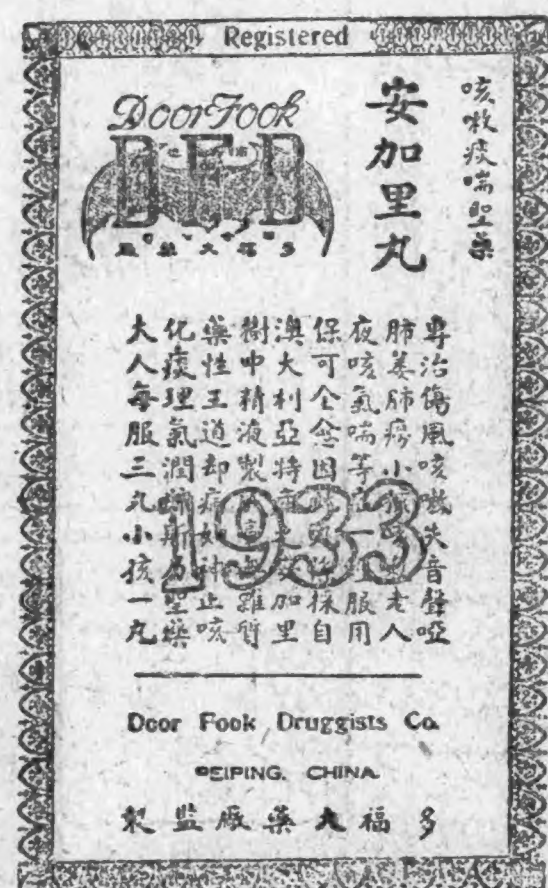 Registered
咳嗽痰喘聖藥
安加里丸
Door Fook
D F D
多福大藥
專治傷風咳嗽失音聲啞
肺萎肺癆小孩老人
夜咳氣喘等症一服用
保可全愈因此採自
澳大利亞特產之安加里
樹中精液製雜質
藥性王道却病如神止咳
化痰理氣潤肺斯為聖藥
大人每服三丸小孩一丸
1933
Door Fook Druggists Co.
PEIPING. CHINA.
多福大藥廠監製